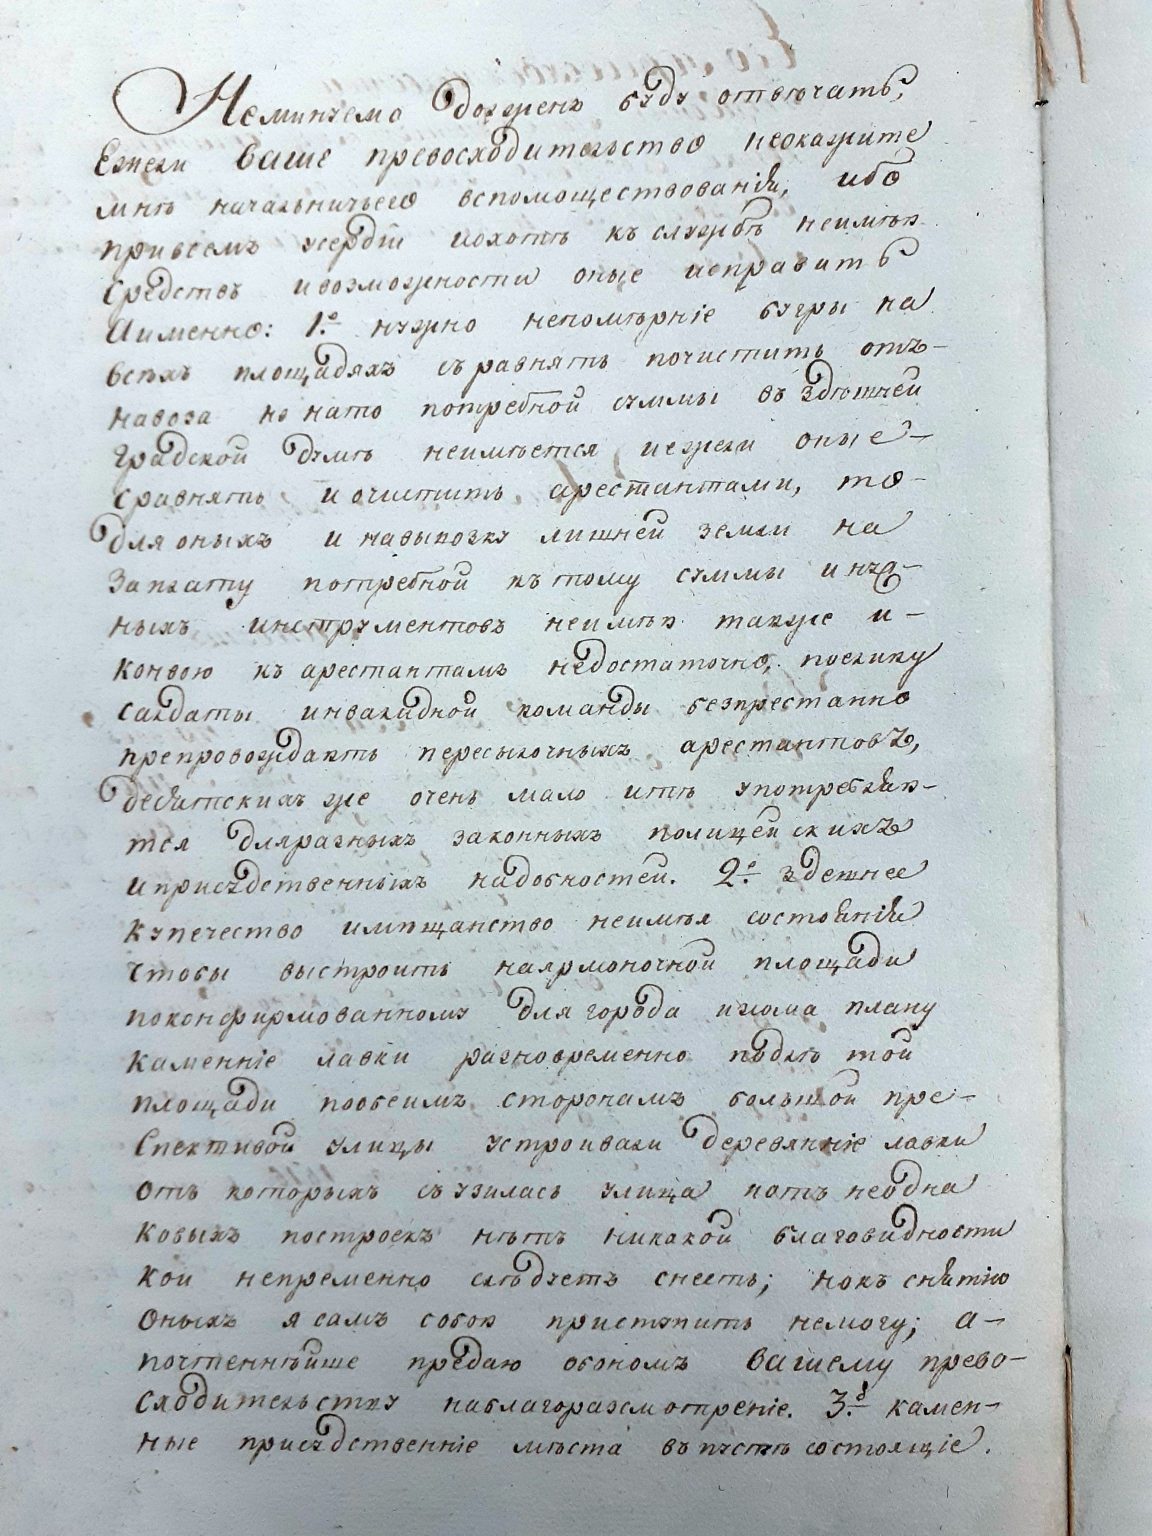 Неминуемо долженъ буду отвѣчать,
Ежели ваше превосходительство неокажите
мнѣ начальничьего вспомоществованія, ибо
привсемъ усердіи иохотѣ къ службѣ неимѣю
средствъ ивозможности оные исправить
Аименно: 1е нужно непомѣрніе бугры на
всѣхъ площадяхъ съравнять почистить отъ-
навоза но нато потребной суммы въ здѣшней
градской думѣ неимѣется иежели оные-
сравнять и очистить арестантами, то-
для оныхъ и навывозку лишней земли на
Заплату потребной къ тому суммы и нуж-
ныхъ инструментовъ неимѣю также и-
конвою къ арестантамъ недостаточно, поелику
салдаты инвалидной команды безпрестанно
препровождаютъ пересылочныхъ арестантовъ,
десятскихъ же очень мало итѣ употребляю-
тся дляразныхъ законныхъ полицейскихъ
иприсудственныхъ надобностей. 2е здешнее
купечество имѣщанство неимѣя состоянія
чтобы выстроить наярмоночной площади
поконфирмованному для города плану
каменніе лавки разновременно подлѣ той
площади пообеимъ сторонамъ большой пре-
спективой улицы устроивали деревянніе лавки
отъ которыхъ съузилась улица иотъ неодна
ковыхъ построекъ нѣтъ никакой благовидности
кои непременно слѣдуетъ снесть; нокъ снятію
оныхъ я самъ собою приступить немогу; а-
почтеннѣйше предаю обономъ вашему прево-
сходительству наблагоразсмотреніе. 3е камен-
ные присудственніе мѣста въ пустѣ состоящіе.